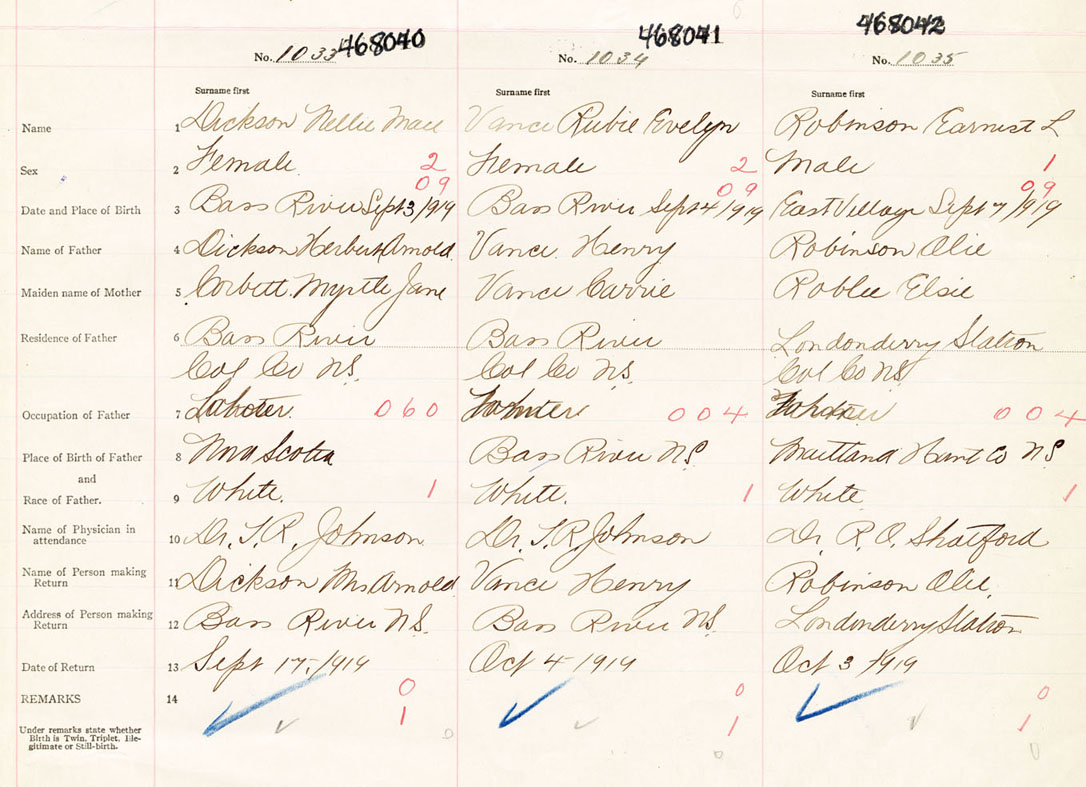 468040 468041 468042
No. 1033 No. 1034 No. 1035
Surname first Surname first Surname first
Name 1 Dickson Nellie Mae Vance Rubie Evelyn Robinson Earnest L
Sex 2 Female 2 Female 2 Male 1
09 09 09
Date and Place of Birth 3 Bass River Sept 3/1919 Bass River Sept 4/1919 East Village Sept 7/1919
Name of Father 4 Dickson Herbert Arnold Vance Henry Robinson Olie
Maiden name of Mother 5 Corbett Myrtle Jane Vance Carrie Roblee Elsie
Residence of Father 6 Bass River Bass River Londonderry Station
Col Co NS. Col Co NS. Col Co NS
Occupation of Father 7 060 004 004
Place of Birth of Father 8 Nova Scotia Bass River NS Maitland Hant Co NS
and
Race of Father. 9 White. 1 White. 1 White 1
Name of Physician in
attendance 10 Dr. T. R. Johnson Dr. T. R Johnson Dr. R. O. Shatford
Name of Person making
Return 11 Dickson Mrs Arnold Vance Henry Robinson Olie.
Address of Person making
Return 12 Bass River NS. Bass River NS. Londonderry Station
Date of Return 13 Sept 17, 1919 Oct 4 1919 Oct 3 1919
REMARKS 14 0 0 0
1 1 1
Under remarks state whether
Birth is Twin, Triplet, Ille-
gitimate or Still-birth.